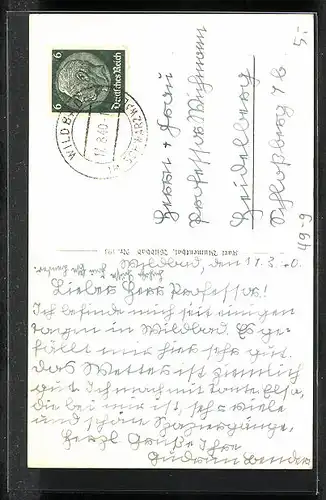 5.-
6 Deutsches Reich 6
WILDBAD
17.8.40.
SCHWARZWALD
Herrn + Frau
Professor
Heidelberg
Schloßberg 7b.
49-9
Karl Blumenthal, Wildbad Nr. 191
Wildbad, den 17.8.40.
Lieber Herr Professor!
Ich befinde mich seit einigen
tagen in Wildbad. Es ge-
fällt mir hier sehr gut.
Das Wetter ist ziemlich
gut. Ich mach mit Tante Elsa,
die bei mir ist, sehr viele
und schöne Spaziergänge.
Herzl Grüße Ihre
Gudrun Bender